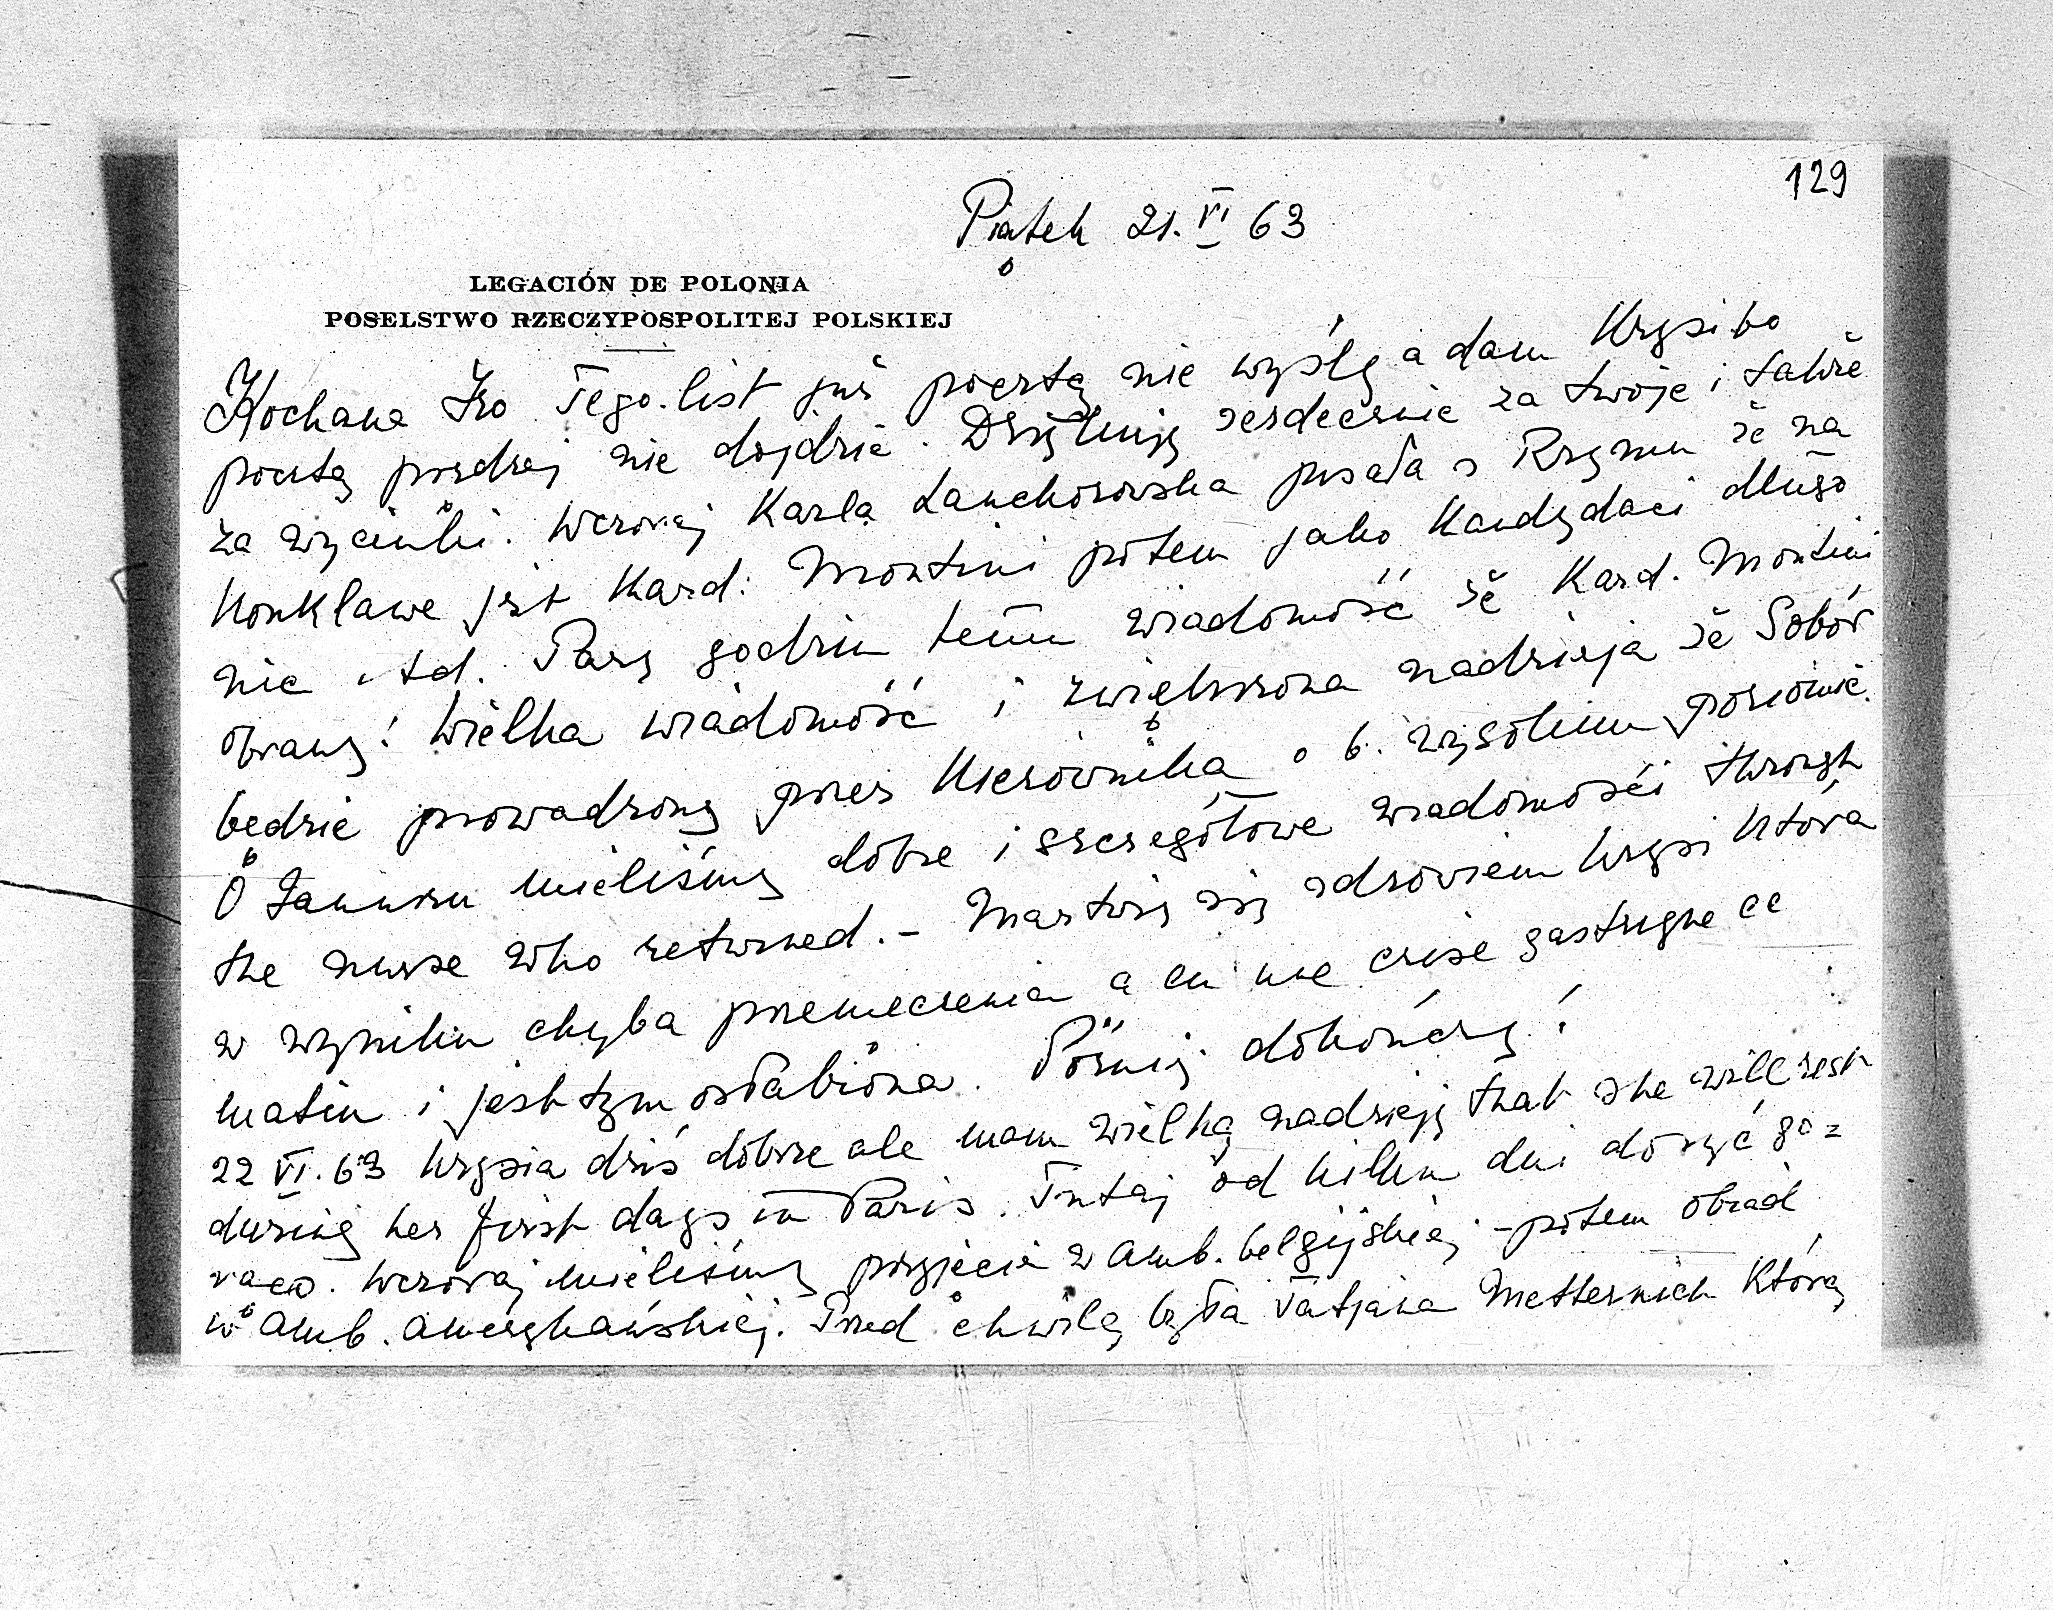 129
Piątek 21. VI 63
LEGACIÓN DE POLONIA
POSELSTWO RZECZYPOSPOLITEJ POLSKIEJ
Kochana Izo Tego list już pocztą nie wyślę a dam Krysi bo
pocztą prędzej nie dojdzie. Dziękuję serdecznie za twoje i także
za wycinki. Wczoraj Karla Lanckorońska pisała z Rzymu że na
Konklawe jest Kard. Montini potem jako kandydaci długo
nic itd. Parę godzin temu wiadomość że Kard. Montini
obrany! Wielka wiadomość i zwiększona nadzieja że Sobór
będzie prowadzony przez kierownika o b. wysokim poziomie.
O mieliśmy dobre i szczegółowe wiadomości through
the nurse who returned. – Martwię się zdrowiem Krysi która
w wyniku chyba przemęczenia a eu une crise gastrique ce
matin i jest tym osłabiona. Później dokończę!
22 VI. 63 Krysia dziś dobrze ale mam wielką nadzieję that she will rest
during her first days in Paris. Tutaj od kilku dni dosyć go=
rąco. Wczoraj mieliśmy przyjęcie w Amb. belgijskiej – potem obiad
w Amb. Amerykańskiej. Przed chwilą była Tatjana Metternich którą